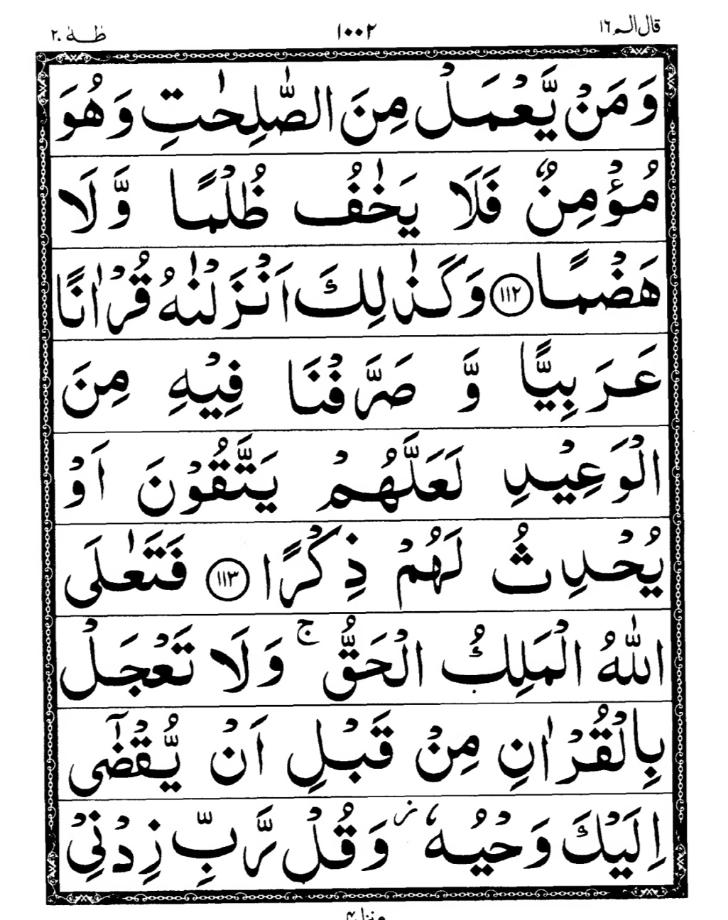 قال الم ١٦ ١٠٠٢ طٰهٰ ٢٠
وَمَنْ يَّعْمَلْ مِنَ الصّٰلِحٰتِ وَهُوَ
مُؤْمِنٌ فَلَا يَخٰفُ ظُلْمًا وَّلَا
هَضْمًا ﴿١١٢﴾ وَكَذٰلِكَ اَنْزَلْنٰهُ قُرْاٰنًا
عَرَبِيًّا وَّ صَرَّفْنَا فِيْهِ مِنَ
الْوَعِيْدِ لَعَلَّهُمْ يَتَّقُوْنَ اَوْ
يُحْدِثُ لَهُمْ ذِكْرًا ﴿١١٣﴾ فَتَعٰلَى
اللّٰهُ الْمَلِكُ الْحَقُّ ۚ وَلَا تَعْجَلْ
بِالْقُرْاٰنِ مِنْ قَبْلِ اَنْ يُّقْضٰٓى
اِلَيْكَ وَحْيُهٗ ؗ وَقُلْ رَّبِّ زِدْنِيْ
منزل ٤